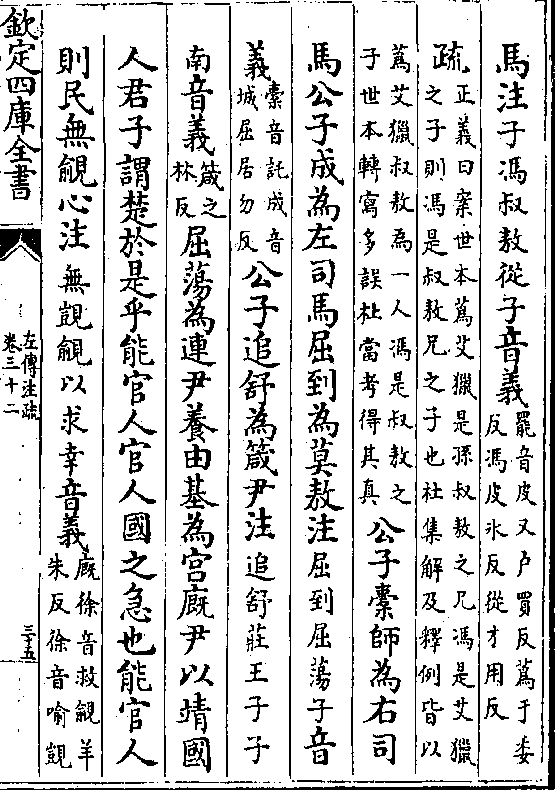 馬注子馮叔敖從子音義罷音皮又户買反蒍于委
反馮皮氷反從才用反
疏正義曰案世本蒍艾獵是孫叔敖之兄馮是艾獵
之子則馮是叔敖兄之子也杜集解及釋例皆以
蒍艾獵叔敖為一人馮是叔敖之
子世本轉寫多誤杜當考得其真公子橐師為右司
馬公子成為左司馬屈到為莫敖注屈到屈蕩子音
義橐音託成音
城屈居勿反公子追舒為箴尹注追舒莊王子子
南音義箴之
林反屈蕩為連尹養由基為宫廐尹以靖國
人君子謂楚於是乎能官人官人國之急也能官人
則民無覦心注無覬覦以求幸音義廐徐音救覦羊
朱反徐音喻覬
欽定四庫全書
左傳注疏
卷三十二
三十五